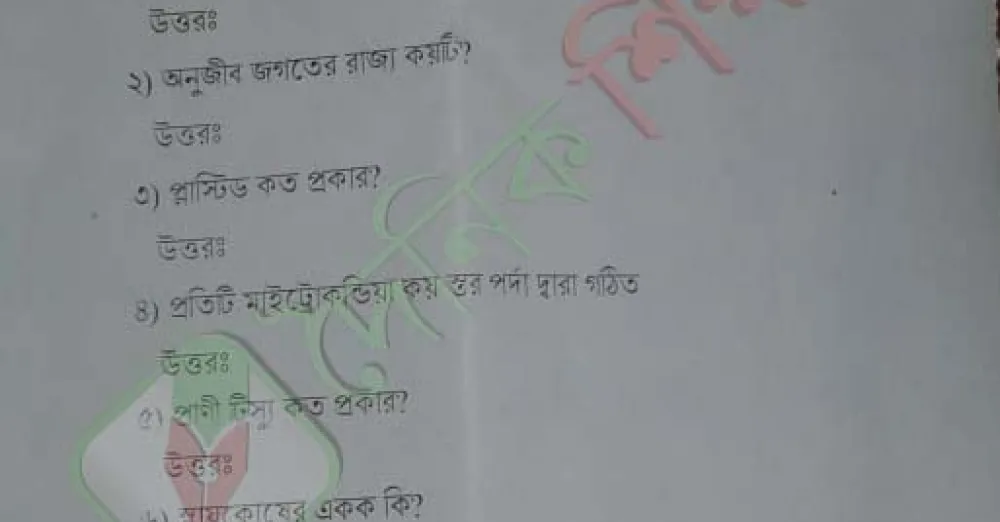 উত্তরঃ
২) অনুজীব জগতের রাজা কয়টি?
উত্তরঃ
৩) প্লাস্টিড কত প্রকার?
উত্তরঃ
৪) প্রতিটি মাইট্রোকন্ডিয়া কয় স্তর পর্দা দ্বারা গঠিত
উত্তরঃ
৫) প্রাণী টিস্যু কত প্রকার?
উত্তরঃ
৬) স্নায়ুকোষের একক কি?
দৈনিক